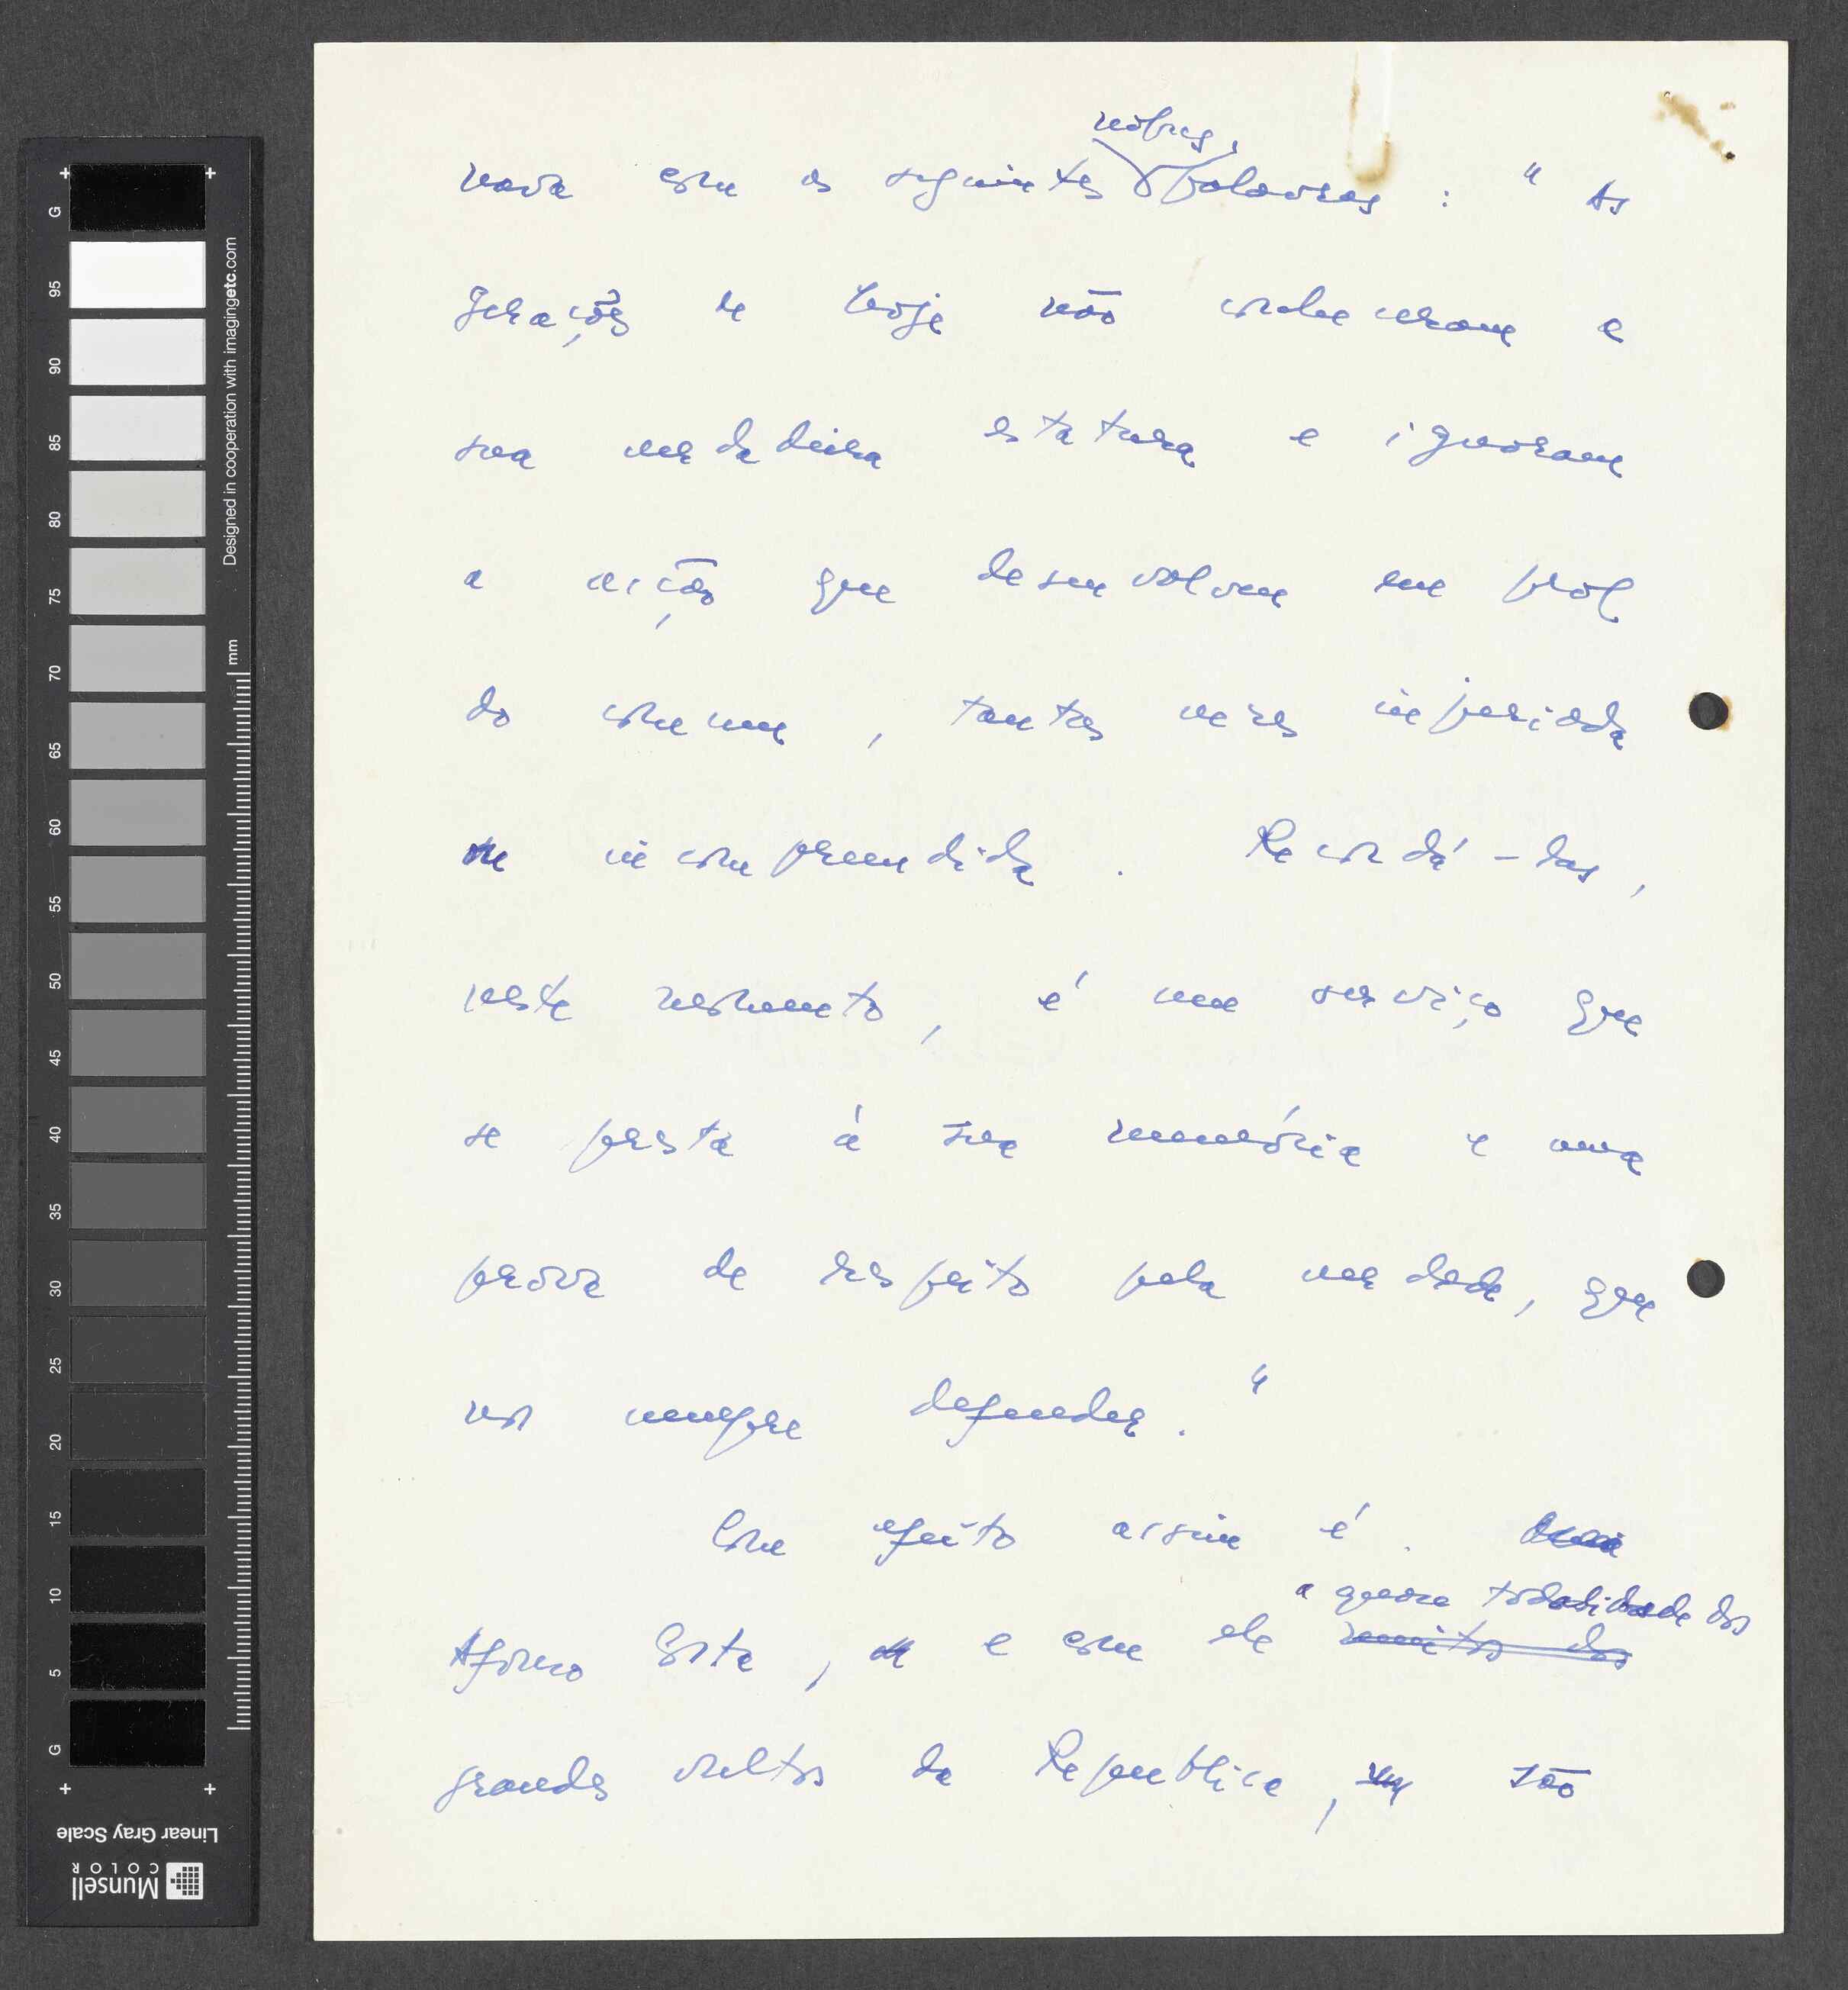 nara com as seguintes nobres palavras : " As
gerações de hoje não conheceram a
sua verdadeira estatura e ignoram
a acção que desenvolveu em prol
do comum , tantas vezes injuriada
e incompreendida . Recordá-las,
neste momento, é um serviço que
se presta à sua memória e uma
prova de respeito pela verdade, que
nos cumpre defender. "
Com efeito assim é.
Afonso Costa, e com ele a quase totalidade dos
muitos dos
grandes vultos da Republica, são
G
95
90
85
80
75
70
65
60
55
50
45
40
35
30
25
20
15
10
5
G
Designed in cooperation with imagingetc.com
mm
Linear Gray Scale
Munsell
COLOR